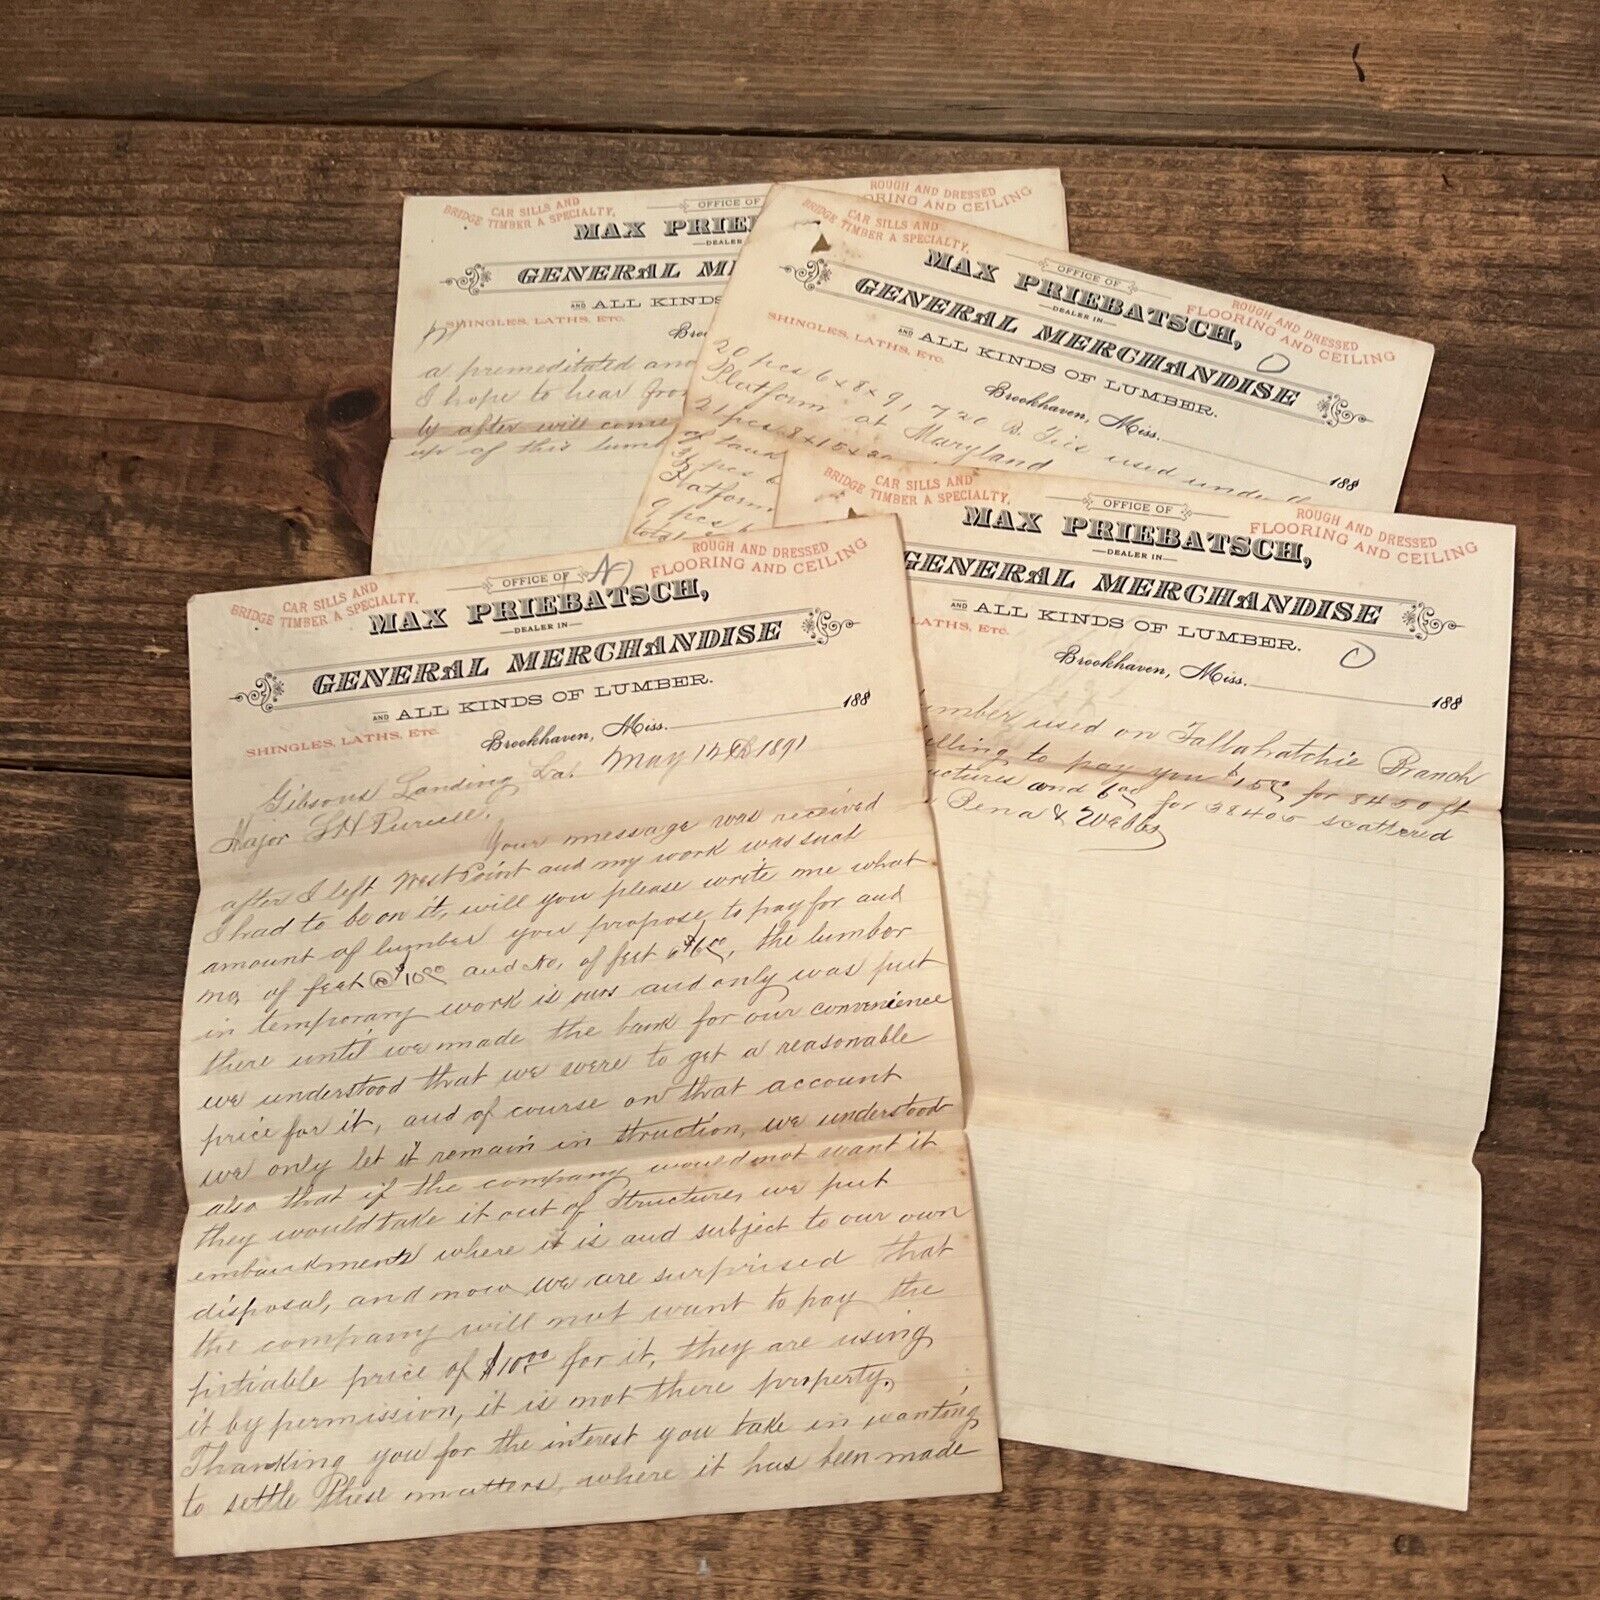 CAR SILLS AND
BRIDGE TIMBER A SPECIALTY,
OFFICE OF
ROUGH AND DRESSED
ORING AND CEILING
MAX PRIE
DEALER
GENERAL ME
AND ALL KINDS
SHINGLES, LATHS, ETC.
Broo
a premeditated and
I hope to hear fro
by after will come
up of this lumb
CAR SILLS AND
BRIDGE TIMBER A SPECIALTY,
OFFICE OF
ROUGH AND DRESSED
FLOORING AND CEILING
MAX PRIEBATSCH,
DEALER IN
GENERAL MERCHANDISE
AND ALL KINDS OF LUMBER.
SHINGLES, LATHS, ETC.
Brookhaven, Miss. 188
20 pcs 6x8x9, 720 B. Ties used under
Platform at Maryland
21 pcs 8x15x
pcs 6
Platform
9 pcs 6
total
CAR SILLS AND
BRIDGE TIMBER A SPECIALTY,
OFFICE OF
ROUGH AND DRESSED
FLOORING AND CEILING
MAX PRIEBATSCH,
DEALER IN
GENERAL MERCHANDISE
AND ALL KINDS OF LUMBER.
LATHS, ETC.
Brookhaven, Miss. 188
umber used on Tallahatchie Branch
illing to pay you $15 for 8450 ft
uctures and 6 00 for 38405 scattered
Pena & Webb
CAR SILLS AND
BRIDGE TIMBER A SPECIALTY,
OFFICE OF
ROUGH AND DRESSED
FLOORING AND CEILING
MAX PRIEBATSCH,
DEALER IN
GENERAL MERCHANDISE
AND ALL KINDS OF LUMBER.
SHINGLES, LATHS, ETC.
Brookhaven, Miss. 188
Gibsons Landing La. May 12th 1891
Major
Your message was received
after I left West Point and my work was such
I had to be on it, will you please write me what
amount of lumber you propose to pay for and
no. of feet @ $10.00 and No. of feet @ $6.00, the lumber
in temporary work is ours and only was put
there until we made the bank for our convenience
we understood that we were to get a reasonable
price for it, and of course on that account
we only let it remain in struction, we understood
also that if the company would not want it
they would take it out of structure, we put
embankments where it is and subject to our own
disposal, and now we are surprised that
the company will not want to pay the
pirtiable price of $10.00 for it, they are using
it by permission, it is not there property.
Thanking you for the interest you take in wanting
to settle these matters, where it has been made